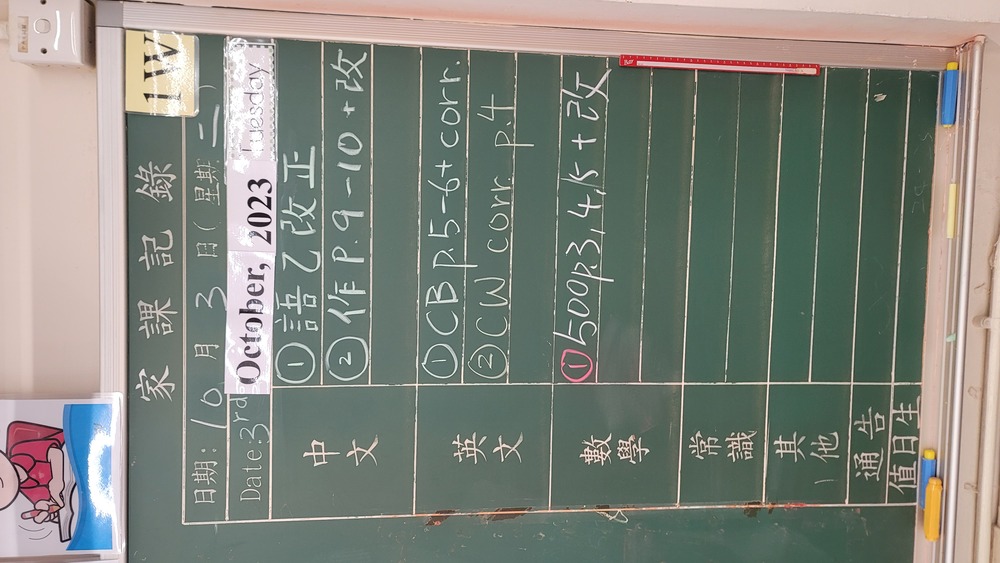 1W
家課記錄
日期: 10月3日(星期二)
Date: 3rd October, 2023 Tuesday
中文 ①語乙改正
②作P.9-10+改
英文 ①CB p.5-6+corr.
②CW corr. p.4
數學 ①500p3,4,15+改
常識
其他
通告
值日生